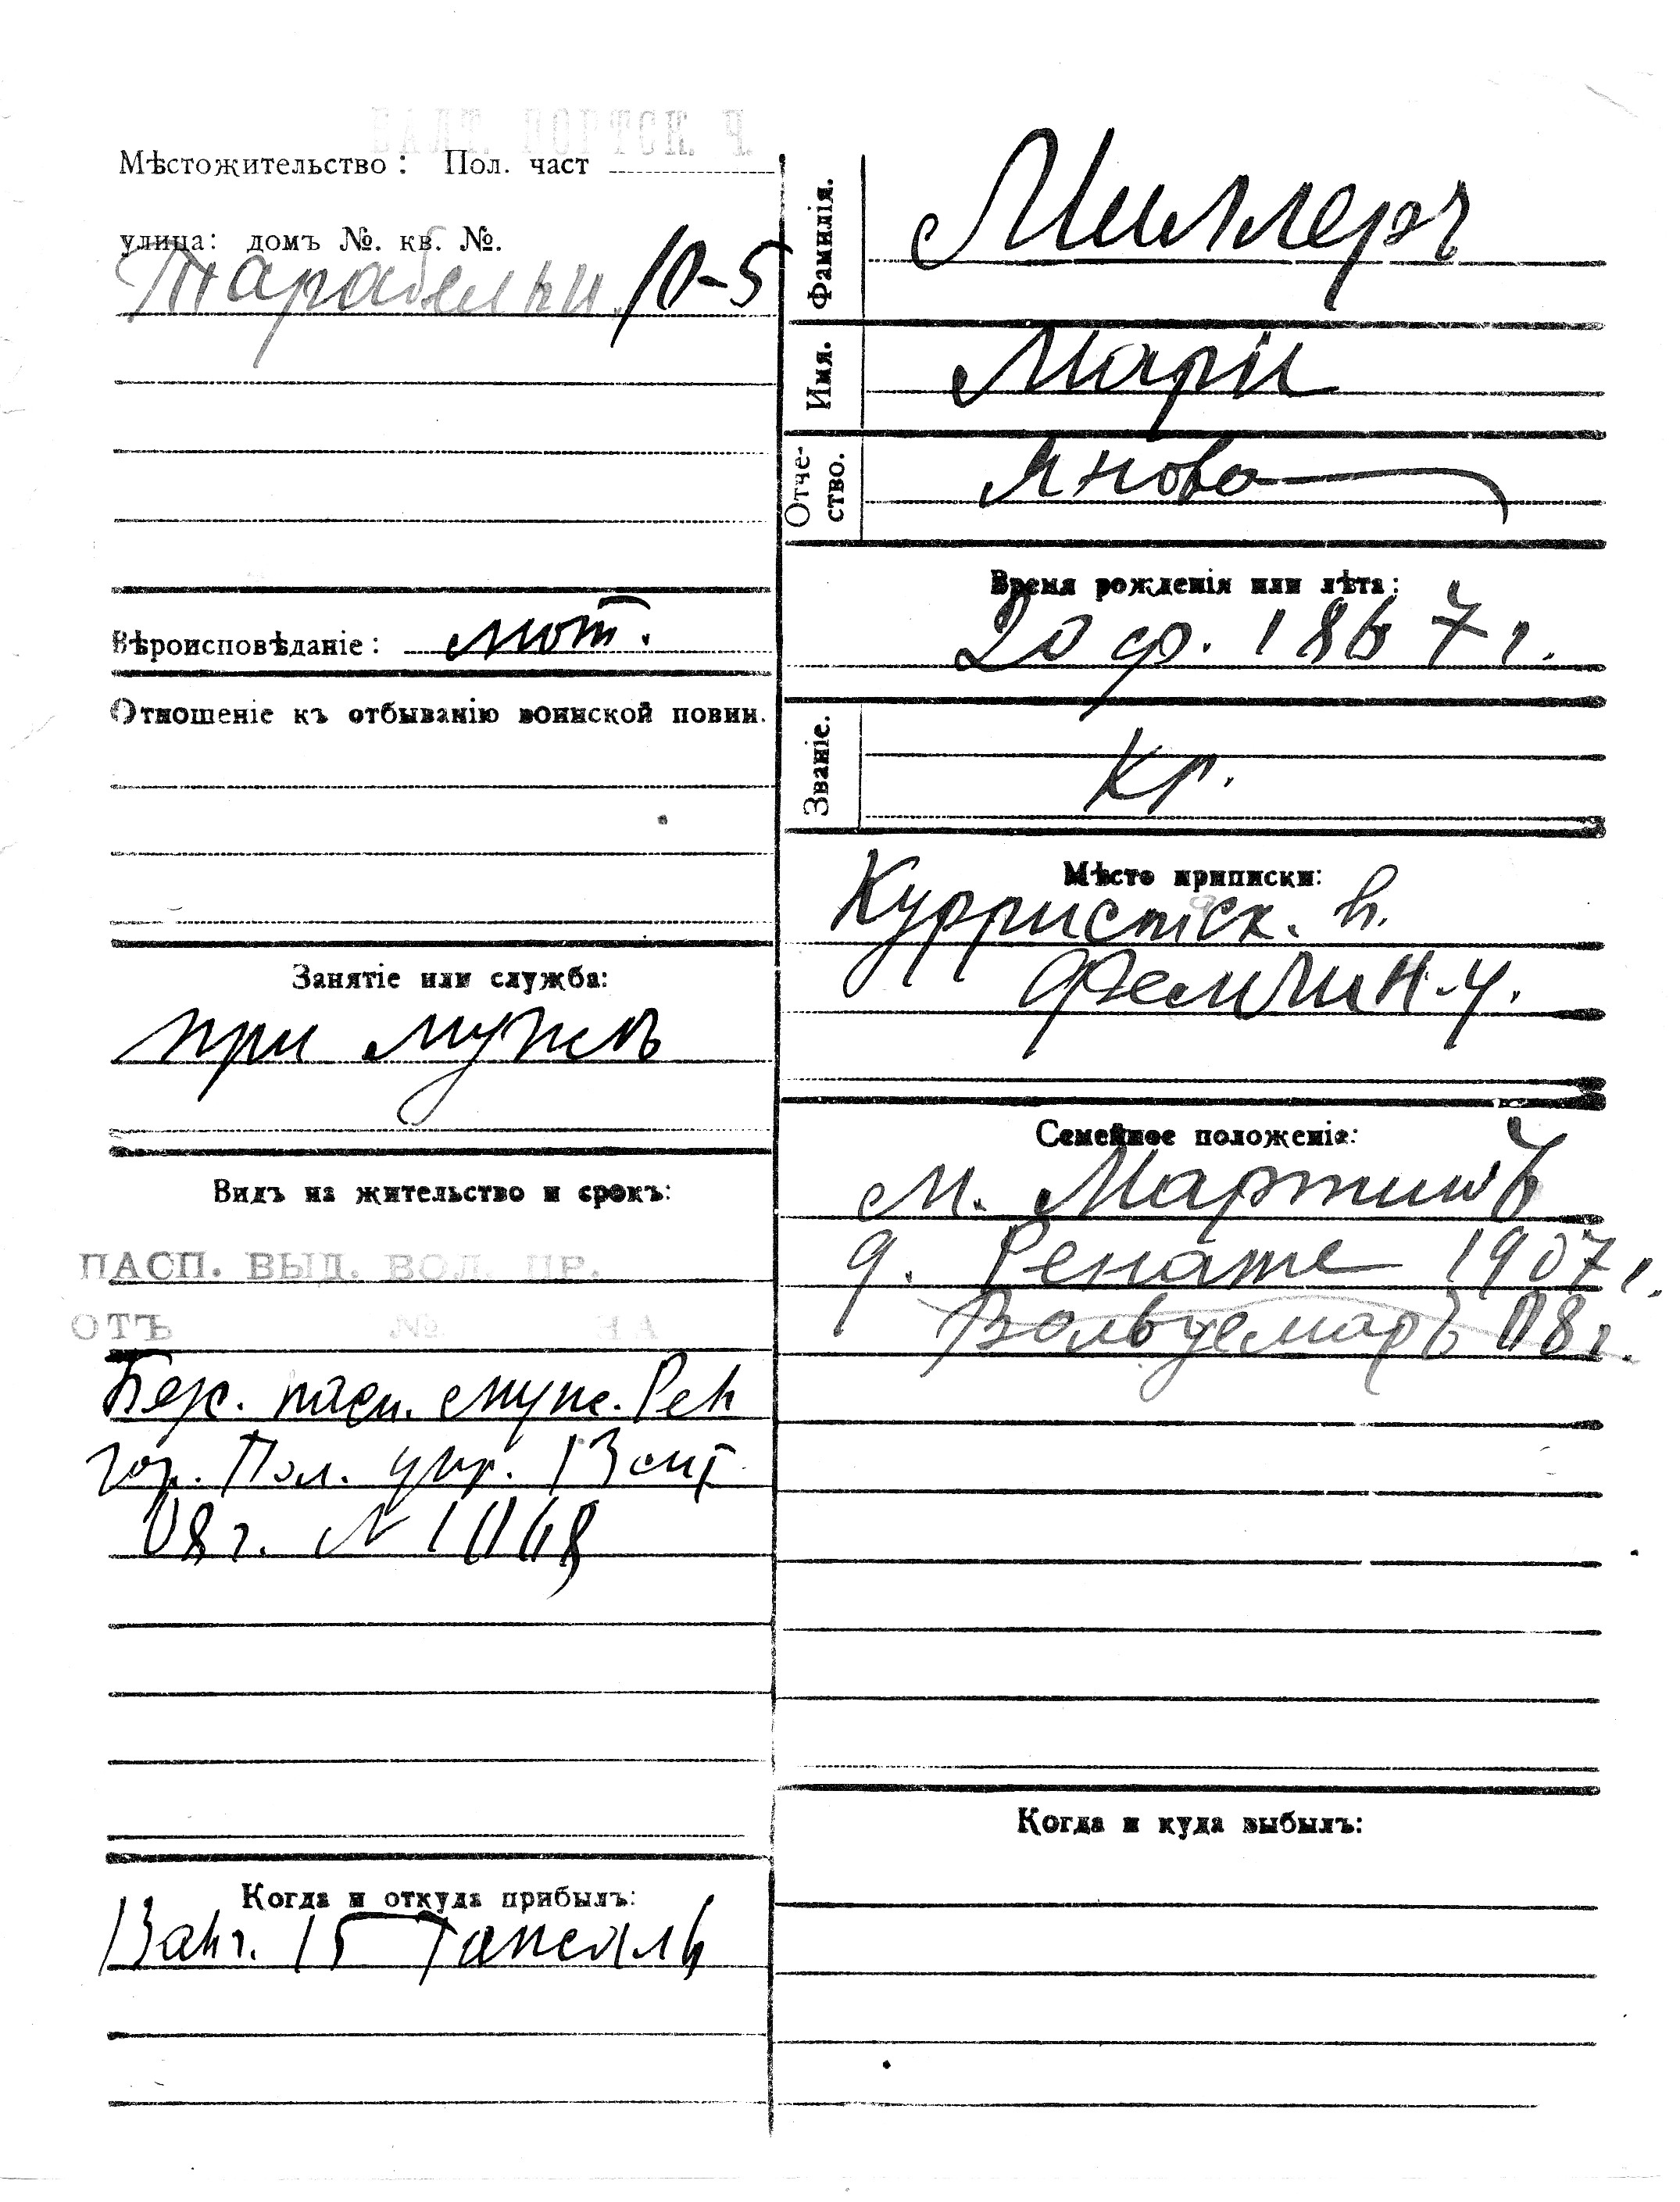 БАЛТ. ПОРТСК. Ч.
Мѣстожительство: Пол. част
улица: домъ №. кв. №.
10-5
Вѣроисповѣданіе: лют.
Отношеніе къ отбыванію воинской повин.
Занятіе или служба:
при мужѣ
Видъ на жительство и срокъ:
ПАСП. ВЫД. ВОЛ. ПР.
ОТЪ № НА
гор. Пол. упр. 13 
08 г. N
Когда и откуда прибылъ:
13 авг. 15
Фамилія. Миллеръ
Имя. Мари
Отчество. Янова
Время рожденія или лѣта:
20 ф. 1867 г.
Званіе. Кр.
Мѣсто приписки:
Курристск. в.
Феллин. у.
Семейное положеніе:
м. Мартинъ
д. Ренате 1907 г.
Вольдемаръ 08 г.
Когда и куда выбылъ: